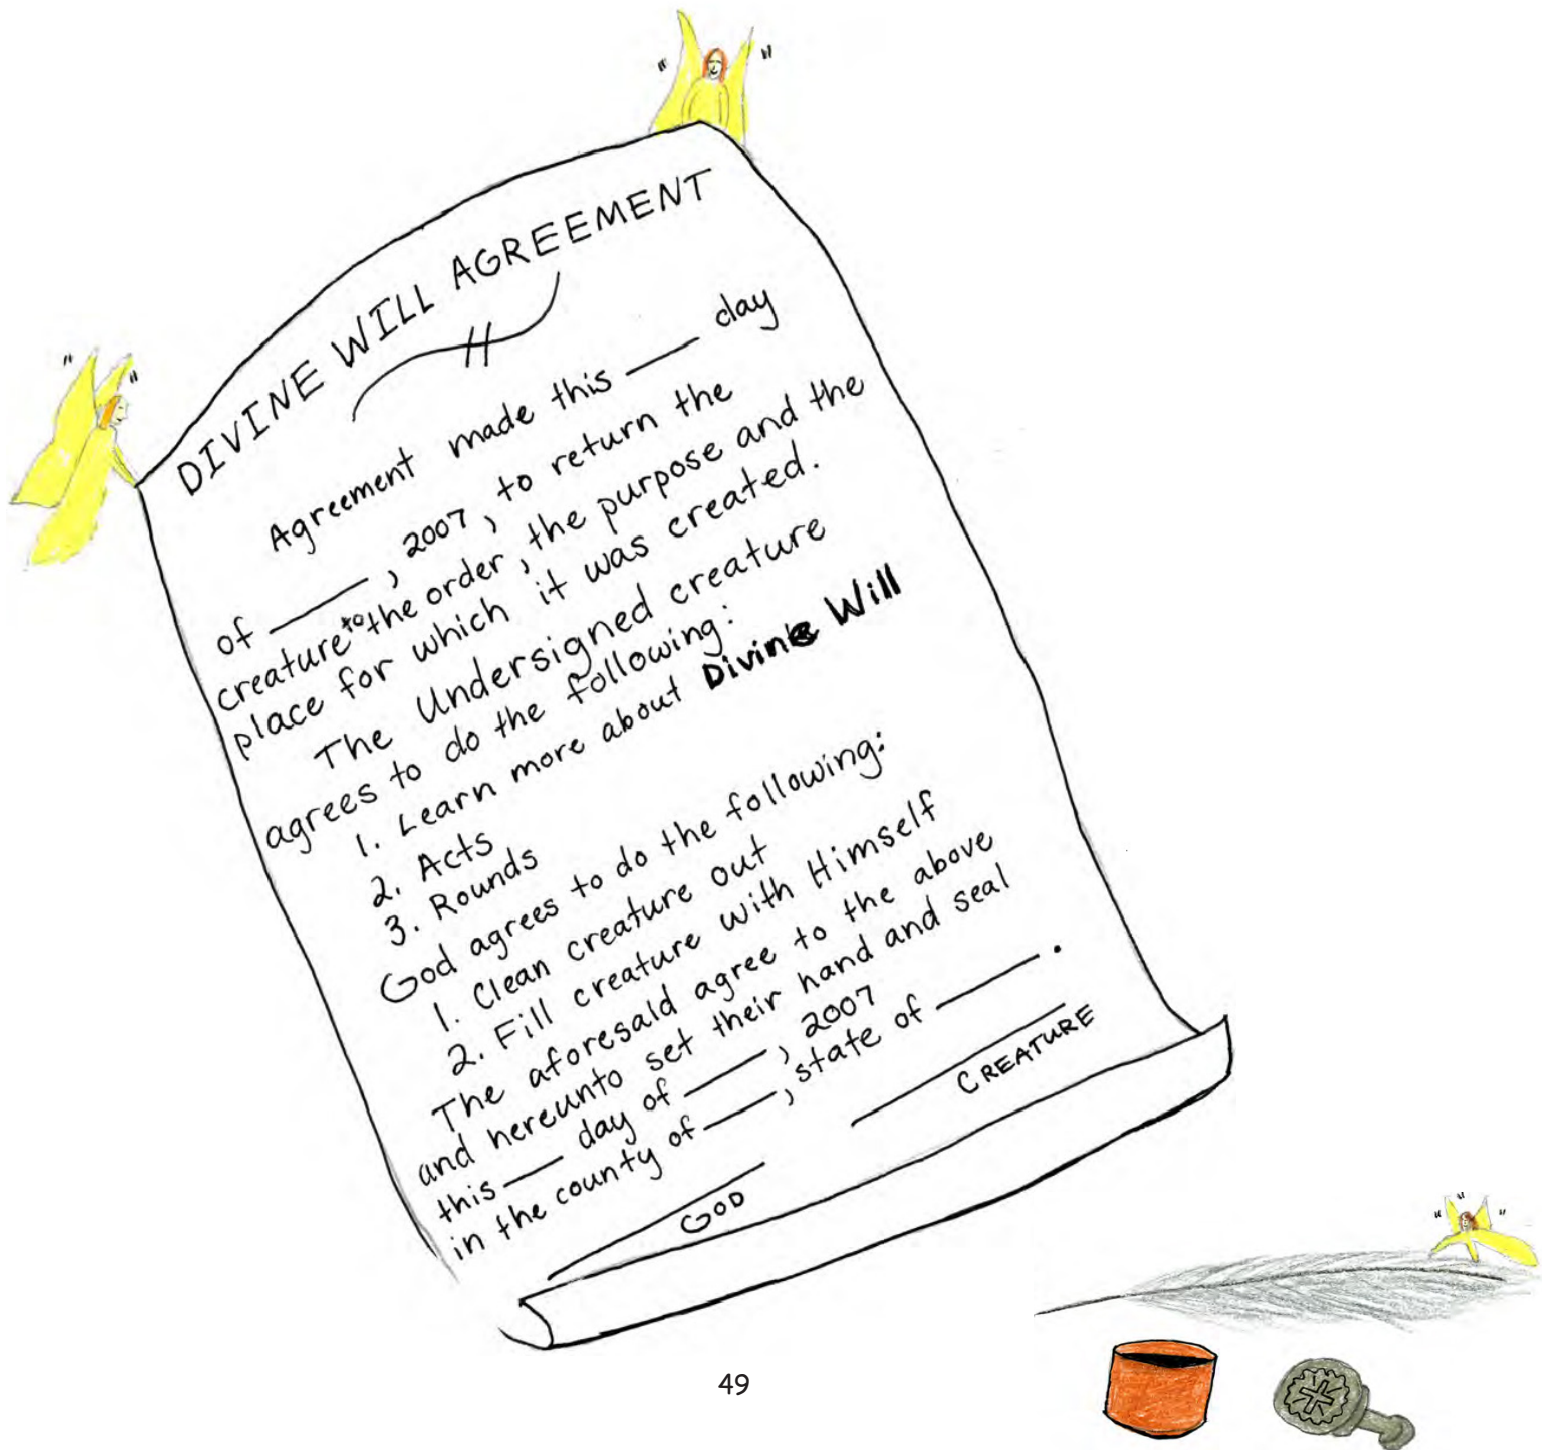 DIVINE WILL AGREEMENT
Agreement made this ___ day
of ___, 2007, to return the
creature to the order, the purpose and the
place for which it was created.
The Undersigned creature
agrees to do the following:
1. Learn more about Divine Will
2. Acts
3. Rounds
God agrees to do the following:
1. Clean creature out
2. Fill creature with Himself
The aforesaid agree to the above
and hereunto set their hand and seal
this ___ day of ___, 2007
in the county of ___, state of ___.
CREATURE
GOD
49